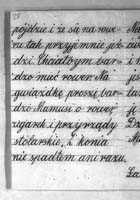 18
pójdzie i że są na rowe-
ru tak przyjemnie jeź-
dzi. Chciałbym bar-
dzo mieć rower. Na
gwiazdkę proszę bar-
dzo Mamusi o rower
zegarek i przyrządy
stolarskie. Z konia
nie spadłem ani razu.